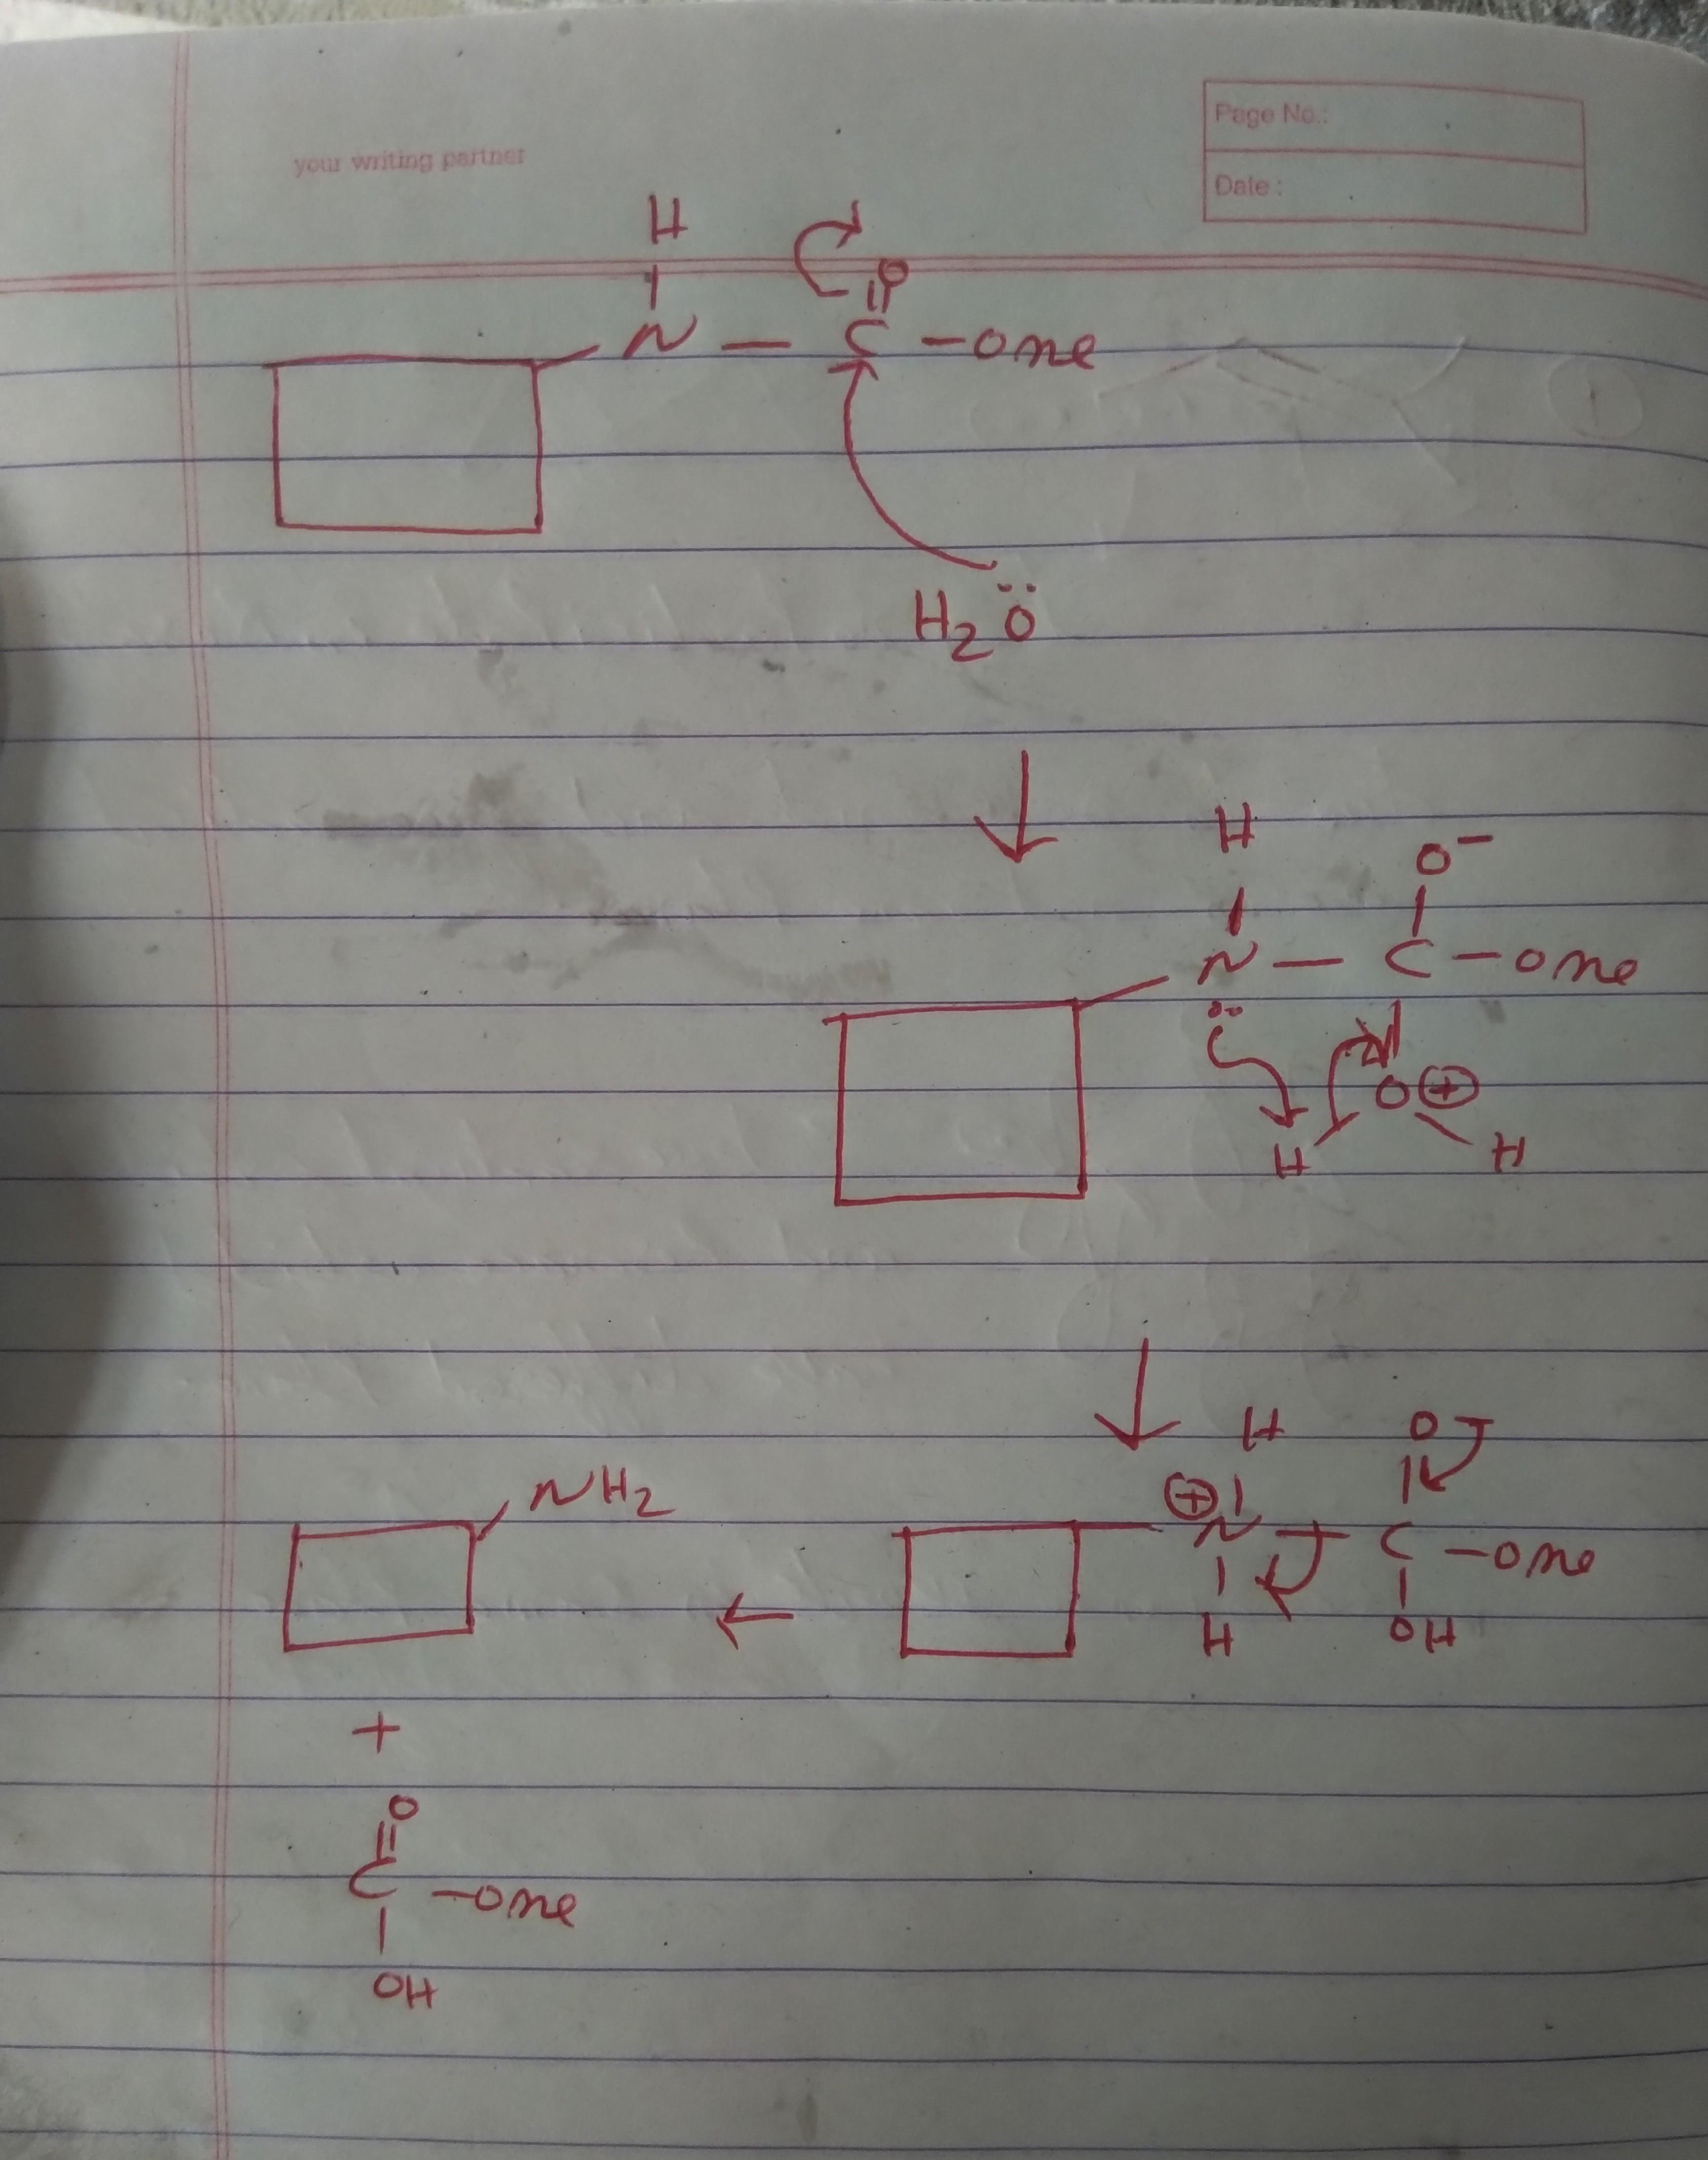 your writing partner
Page No.:
Date :
H
O
N — C — ome
H₂Ö
H
O⁻
N — C — ome
O ⊕
H H
H O
⊕
N — C — ome
H OH
NH₂
+
O
C — ome
OH